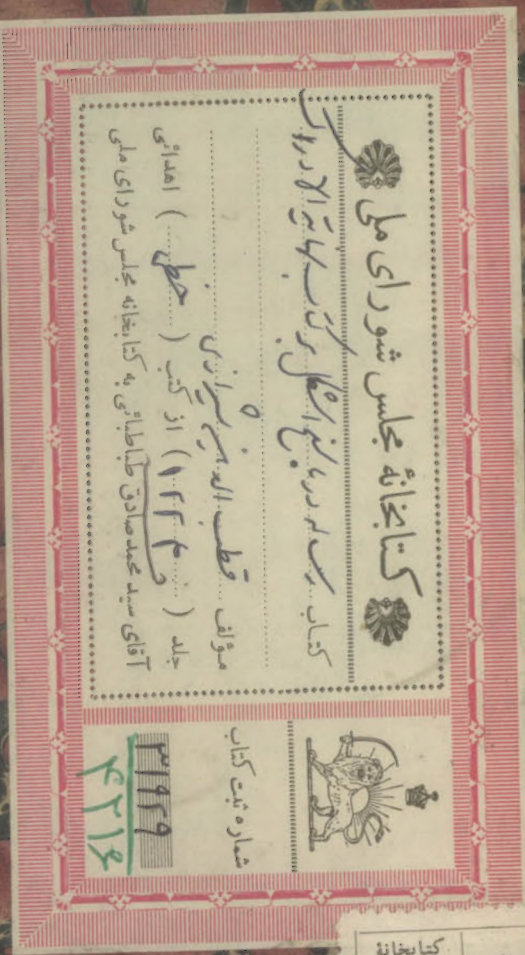 کتابخانهٔ مجلس شورای ملی
کتاب رساله در پاسخ اشکال بر کتاب نهایة الادراک
مؤلف قطب الدین شیرازی
جلد (۱۲۲۳) از کتب (خطی) اهدائی
آقای سید محمد صادق طباطبائی به کتابخانه مجلس شورای ملی
شماره ثبت کتاب
۳۱۹۲۹
۴۲۱۶
کتابخانهٔ